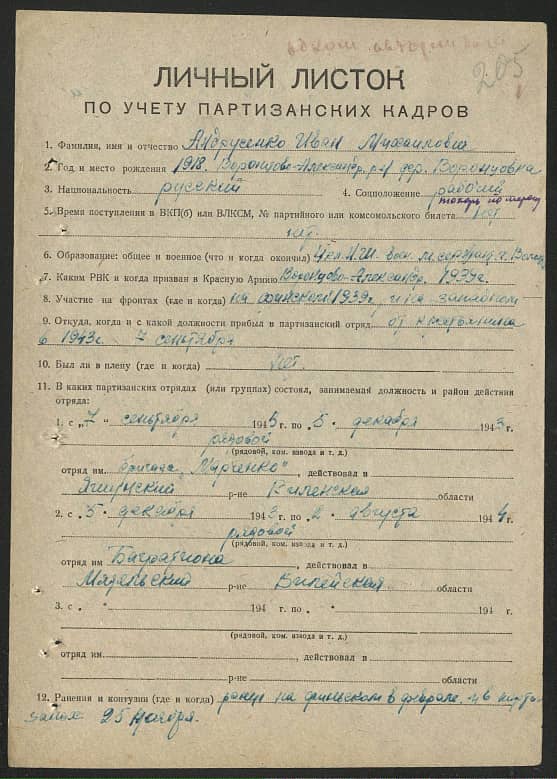 205
ЛИЧНЫЙ ЛИСТОК
ПО УЧЕТУ ПАРТИЗАНСКИХ КАДРОВ
1. Фамилия, имя и отчество Андрусенко Иван Михайлович
2. Год и место рождения 1918. Воронцово-Александр. р-н дер. Воронцовка
3. Национальность русский 4. Соцположение рабочий
токарь по
5. Время поступления в ВКП(б) или ВЛКСМ, № партийного или комсомольского билета нет
нет.
6. Образование: общее и военное (что и когда окончил) 4 кл. воен. м.
7. Каким РВК и когда призван в Красную Армию Воронцово-Александр. 1939г.
8. Участие на фронтах (где и когда) на финском 1939г. и на западном
9. Откуда, когда и с какой должности прибыл в партизанский отряд от крестьянина
в 1943г. 7 сентября
10. Был ли в плену (где и когда) Нет.
11. В каких партизанских отрядах (или группах) состоял, занимаемая должность и район действия
отряда:
1. с „7“ сентября 1943 г. по „5“ декабря 1943 г.
рядовой
(рядовой, ком. взвода и т. д.)
отряд им. бригада „Марченко“, действовал в
р-не Виленская области
2. с „5“ декабря 1943 г. по „2“ августа 1944 г.
рядовой
(рядовой, ком. взвода и т. д.)
отряд им Багратиона, действовал в
Мядельский р-не Вилейская области
3. с „ “ 194 г. по „ “ 194 г.
(рядовой, ком. взвода и т. д.)
отряд им., действовал в
р-не области
12. Ранения и контузии (где и когда) ранен на финском в феврале. и в парти-
занах 25 ноября.